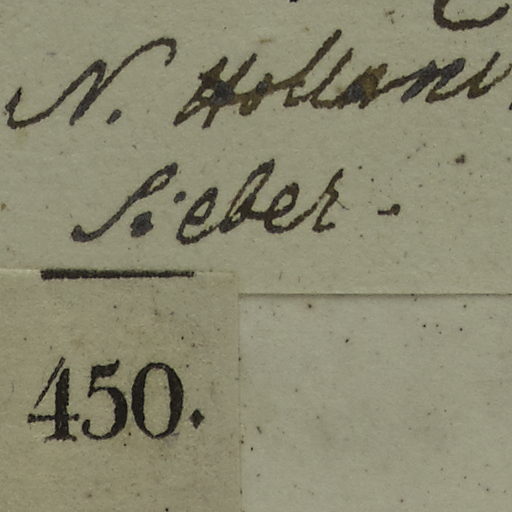 N. Hollan
Sieber.
450.